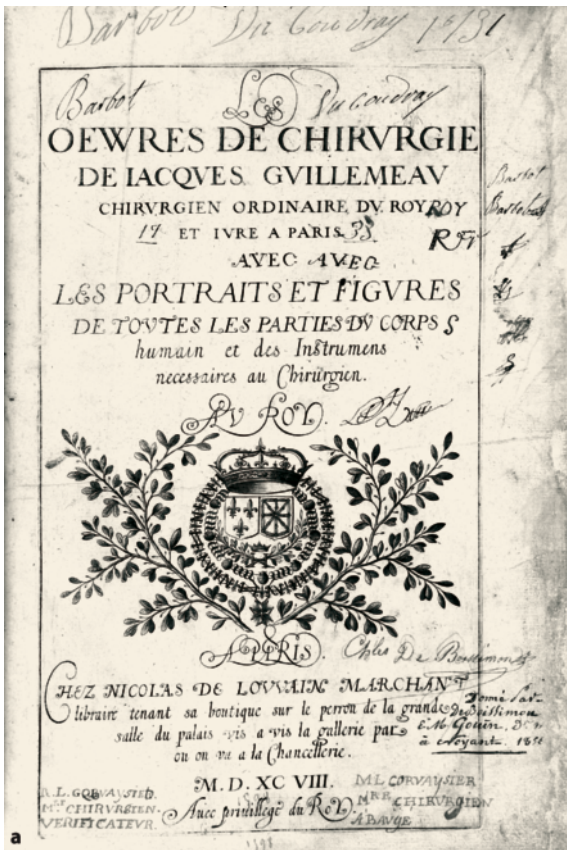 Barbot Du Coudray 1731
Barbot Du Coudray
LES
OEWRES DE CHIRVRGIE
DE IACQVES GVILLEMEAV
CHIRVRGIEN ORDINAIRE DV ROY ROY
17 ET IVRE A PARIS. 33
AVEC AVEC
LES PORTRAITS ET FIGVRES
DE TOVTES LES PARTIES DV CORPS S
humain et des Instrumens
necessaires au Chirurgien.
AV ROY.
Barbot
A PARIS.
Chles De
CHEZ NICOLAS DE LOVVAIN MARCHANT
libraire tenant sa boutique sur le perron de la grande
salle du palais vis a vis la gallerie par
ou on va a la Chancellerie.
M. D. XC VIII.
Avec privillege du Roy.
à Noyant
CHIRVRGIEN.
VERIFICATEVR.
M L CORVAYSIER
MRE CHIRVRGIEN
A BAVGE
1598
a